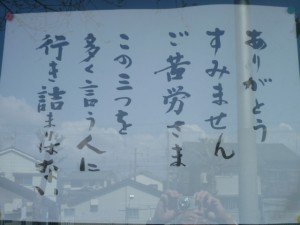 ありがとう
すみません
ご苦労さま
この三つを
多く言う人に
行き詰まりはない